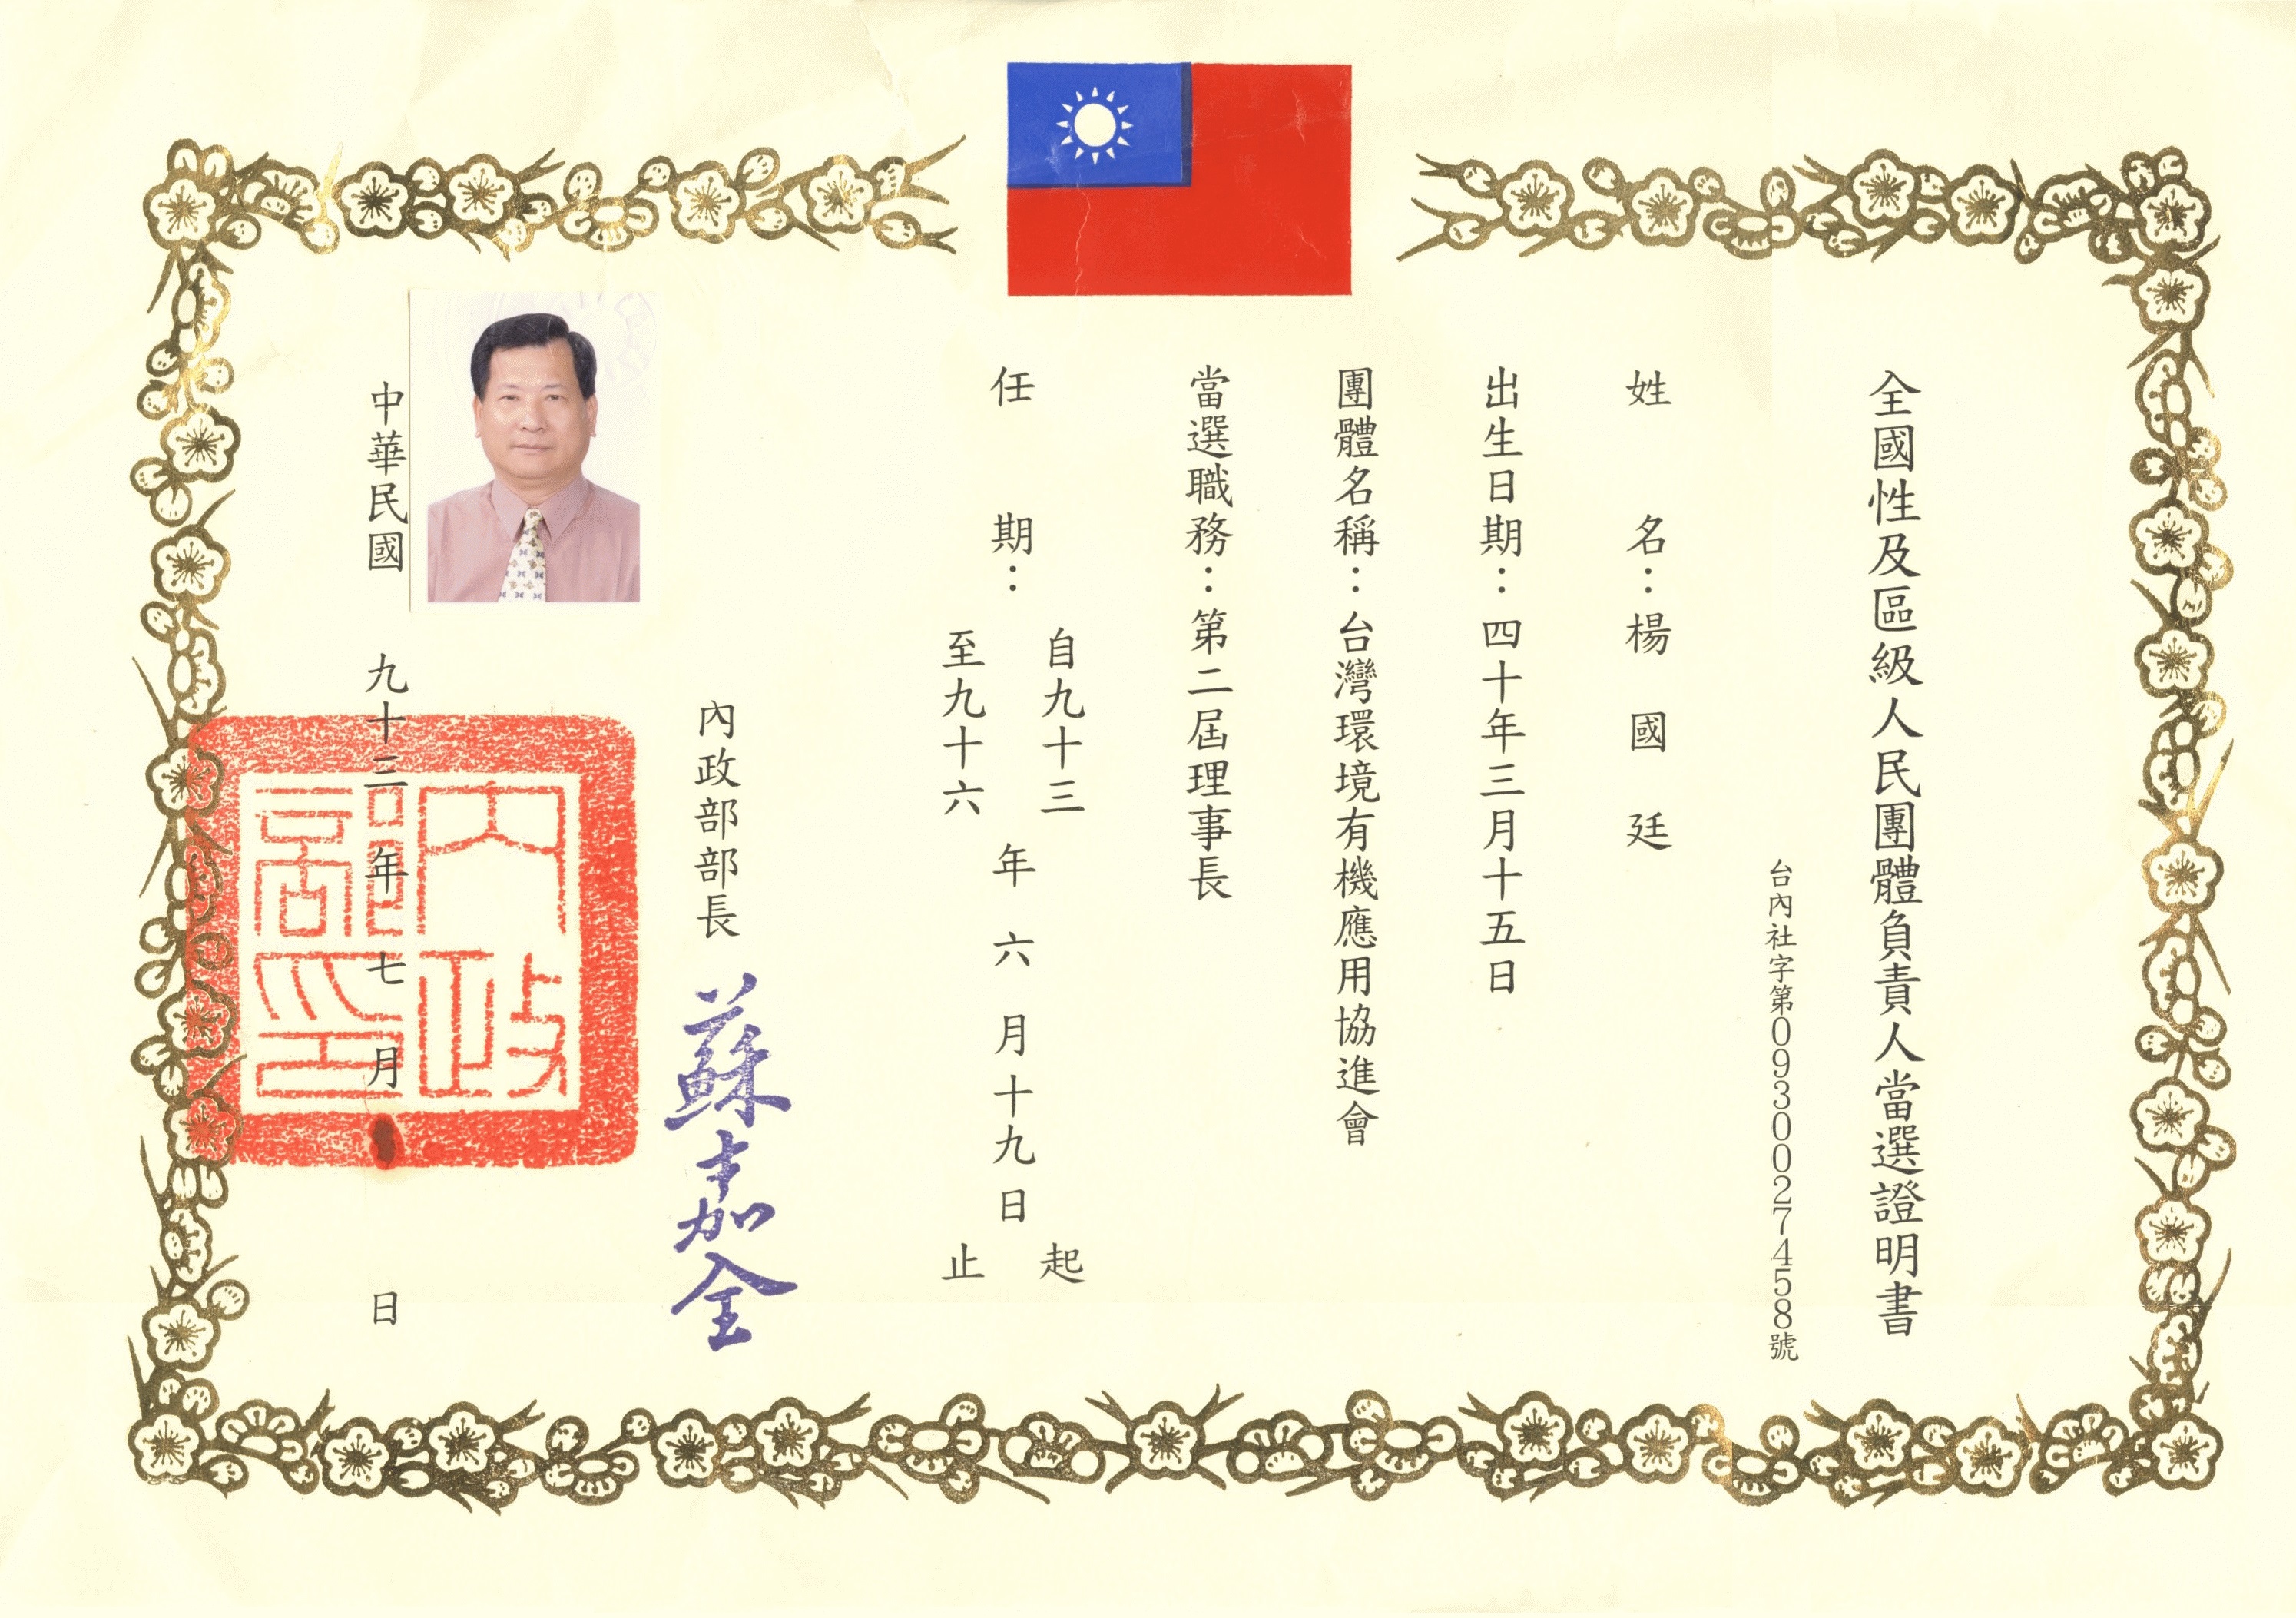 全國性及區級人民團體負責人當選證明書
台內社字第0930027458號
姓名：楊國廷
出生日期：四十年三月十五日
團體名稱：台灣環境有機應用協進會
當選職務：第二屆理事長
任期：
自九十三
至九十六
年六月十九日
起
止
內政部部長
蘇嘉全
內政部印
中華民國九十三年七月日